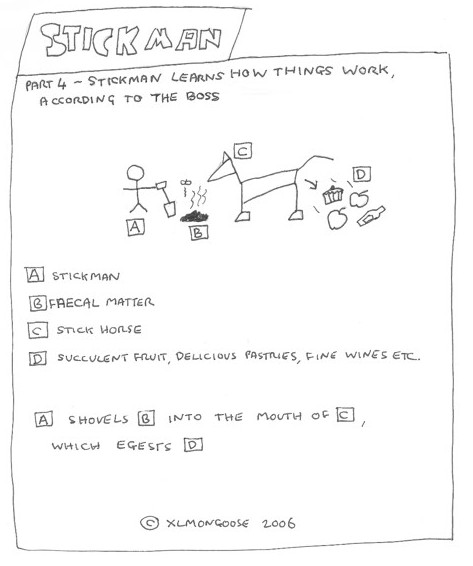 STICKMAN
PART 4 ~ STICKMAN LEARNS HOW THINGS WORK,
ACCORDING TO THE BOSS
C
D
A
B
A STICKMAN
B FAECAL MATTER
C STICK HORSE
D SUCCULENT FRUIT, DELICIOUS PASTRIES, FINE WINES ETC.
A SHOVELS B INTO THE MOUTH OF C,
WHICH EGESTS D
© XLMONGOOSE 2006